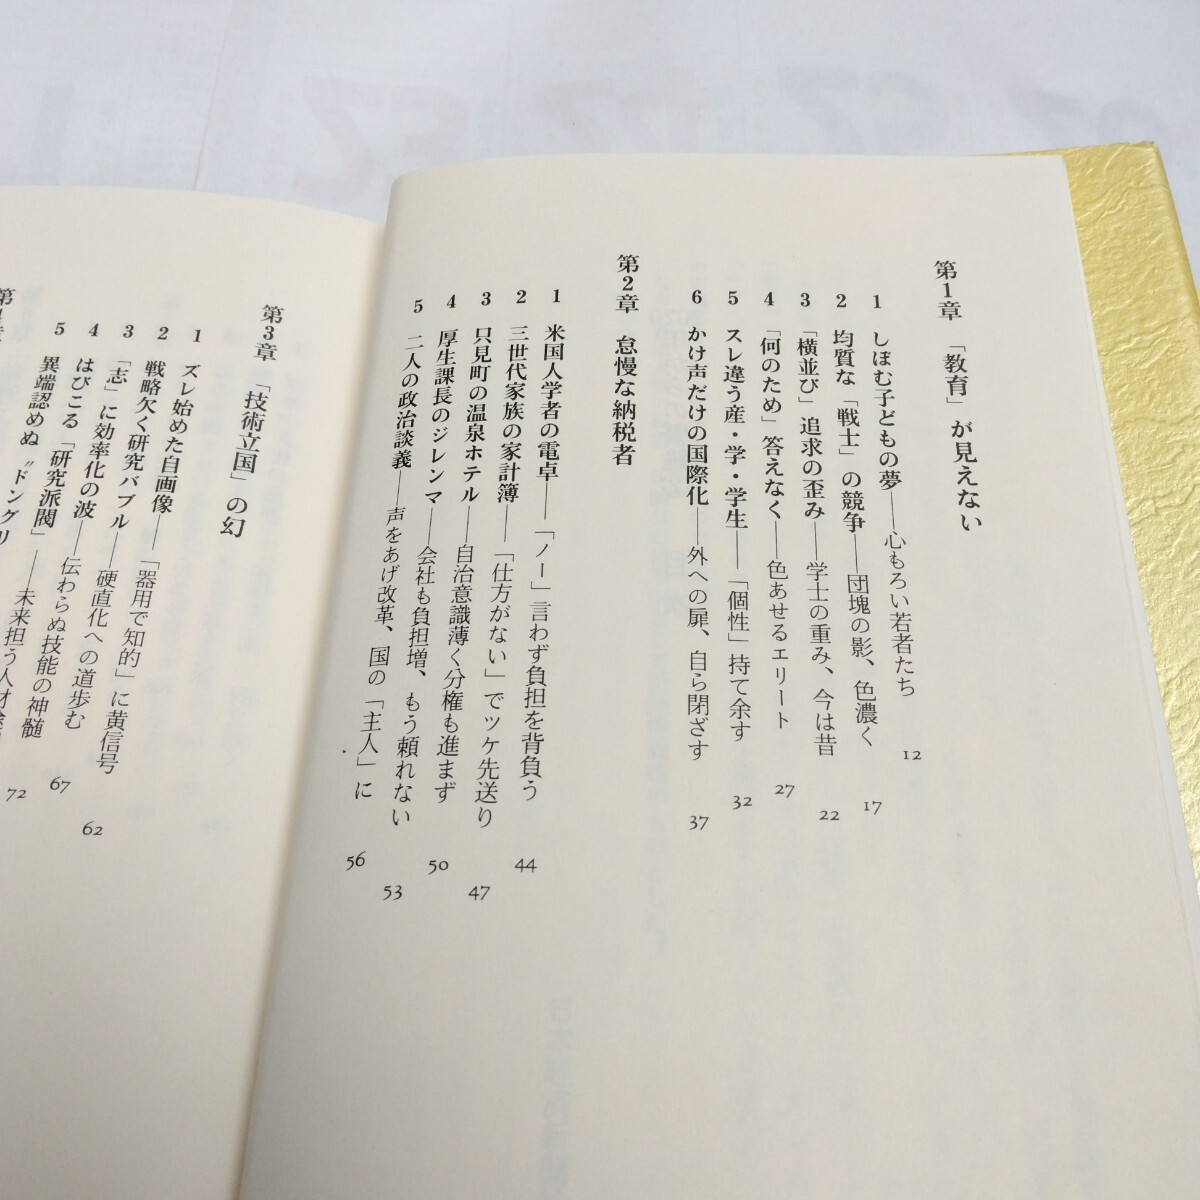 第1章 「教育」が見えない
1 しぼむ子どもの夢――心もろい若者たち 12
2 均質な「戦士」の競争――団塊の影、色濃く 17
3 「横並び」追求の歪み――学士の重み、今は昔 22
4 「何のため」答えなく――色あせるエリート 27
5 スレ違う産・学・学生――「個性」持て余す 32
6 かけ声だけの国際化――外への扉、自ら閉ざす 37
第2章 怠慢な納税者
1 米国人学者の電卓――「ノー」言わず負担を背負う 44
2 三世代家族の家計簿――「仕方がない」でツケ先送り 47
3 只見町の温泉ホテル――自治意識薄く分権も進まず 50
4 厚生課長のジレンマ――会社も負担増、もう頼れない 53
5 二人の政治談義――声をあげ改革、国の「主人」に 56
第3章 「技術立国」の幻
1 ズレ始めた自画像――「器用で知的」に黄信号 62
2 戦略欠く研究バブル――硬直化への道歩む 67
3 「志」に効率化の波――伝わらぬ技能の神髄 72
4 はびこる「研究派閥」――未来担う人材
5 異端認めぬ〝ドングリ